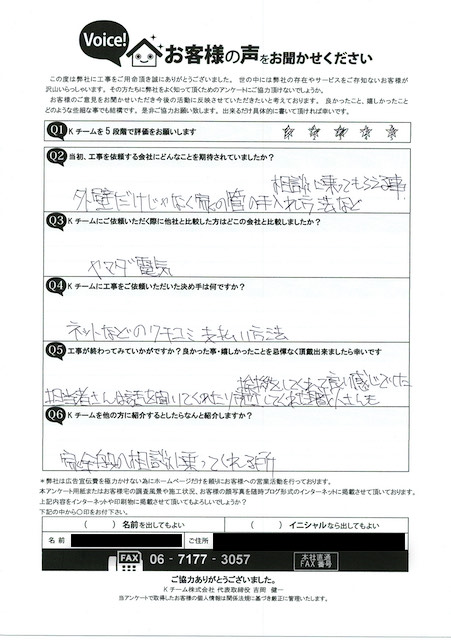 Voice!
お客様の声をお聞かせください
この度は弊社に工事をご用命頂き誠にありがとうございました。世の中には弊社の存在やサービスをご存知ないお客様が
沢山いらっしゃいます。その方たちに弊社をよく知って頂くためのアンケートにご協力頂けないでしょうか。
お客様のご意見をお聞かせいただき今後の活動に反映させていただきたいと考えております。良かったこと、嬉しかったこと
どのような些細な事でも結構です。是非ご協力お願い致します。出来るだけ具体的に書いて頂ければ幸いです。
Q1 Kチームを5段階で評価をお願いします ☆ ☆ ☆ ☆ ☆
Q2 当初、工事を依頼する会社にどんなことを期待されていましたか?
相談に乗ってもらえる事
外壁だけじゃなく家の管の手入れ方法など
Q3 Kチームにご依頼いただく際に他社と比較した方はどこの会社と比較しましたか?
ヤマダ電気
Q4 Kチームに工事をご依頼いただいた決め手は何ですか?
ネットなどのクチコミ 支払い方法
Q5 工事が終わってみていかがですか?良かった事・嬉しかったことを忌憚なく頂戴出来ましたら幸いです
挨拶をしてくれて良い感じでした
担当者さんは話を聞いてくれたり 職人さんも
Q6 Kチームを他の方に紹介するとしたらなんと紹介しますか?
相談に乗ってくれる所
*弊社は広告宣伝費を極力かけない為にホームページだけを頼りにお客様への営業活動を行っております。
本アンケート用紙またはお客様宅の調査風景や施工状況、お客様の顔写真を随時ブログ形式のインターネットに掲載させて頂いております。
上記内容をインターネットや印刷物に掲載させて頂いてもよろしいでしょうか?
下記の中から〇印をお付け下さい。
( )名前を出してもよい ( )イニシャルなら出してもよい
名前 ご住所
FAX 06-7177-3057 本社直通 FAX番号
ご協力ありがとうございました。
Kチーム株式会社 代表取締役 吉岡 健一
当アンケートで取得したお客様の個人情報は関係法規に基づき厳正に管理いたします。